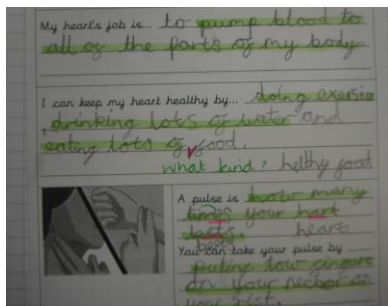 My heart's job is... to pump blood to
all of the parts of my body
I can keep my heart healthy by... doing exersise
, drinking lots of water and
eating lots of good.
what kind? helthy good
A pulse is how many
times your hart
heart
beets.
You can take your pulse by
puting tow
on your neck or on
your